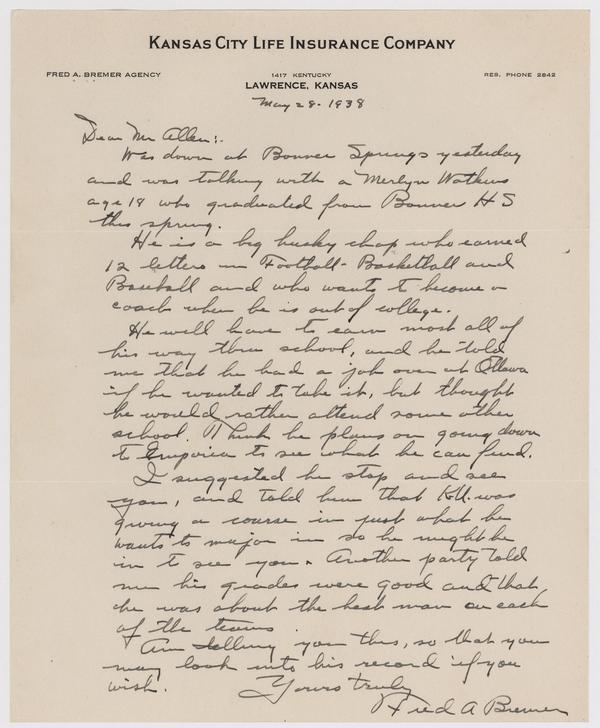 KANSAS CITY LIFE INSURANCE COMPANY
FRED A. BREMER AGENCY
1417 KENTUCKY
RES. PHONE 2842
LAWRENCE, KANSAS
May 28 - 1938
Dear Mr Allen:-
Was down at Bonner Springs yesterday
and was talking with a Merlyn Watkins
age 18 who graduated from Bonner H S
this spring.
He is a big husky chap who earned
12 letters in Football - Basketball and
Baseball and who wants to become a
coach when he is out of college.
He will have to earn most all of
his way thru school, and he told
me that he had a job over at Ottawa
if he wanted to take it, but thought
he would rather attend some other
school. Think he plans on going down
to Emporia to see what he can find.
I suggested he stop and see
you, and told him that K.U. was
giving a course in just what he
wants to major in so he might be
in to see you. Another party told
me his grades were good and that
he was about the best man on each
of the teams.
Am telling you this, so that you
may look into his record if you
wish.
Yours truly
Fred A Bremer